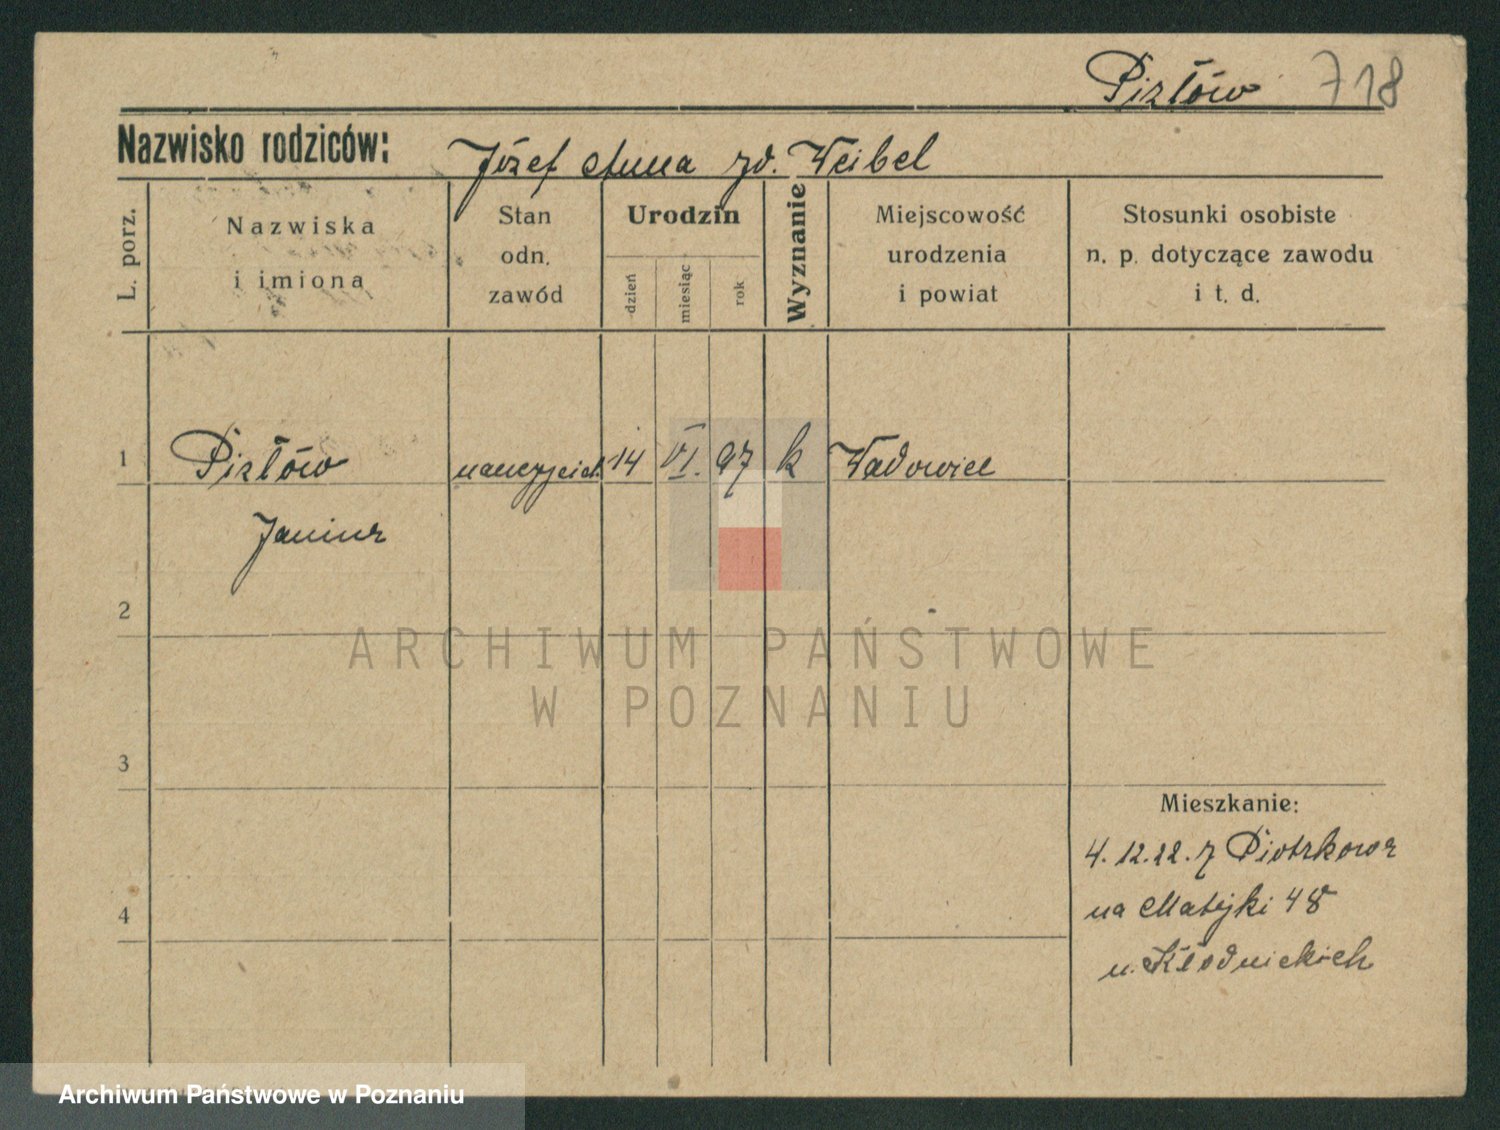 Pizłów 718
Nazwisko rodziców: Józef Anna zd. Weibel
L. porz.
Nazwiska
i imiona
Stan
odn.
zawód
Urodzin
dzień
miesiąc
rok
Wyznanie
Miejscowość
urodzenia
i powiat
Stosunki osobiste
n. p. dotyczące zawodu
i t. d.
1 Pizłów nauczyciel. 14 VI. 97 k Wadowice
Janina
2
ARCHIWUM PAŃSTWOWE
W POZNANIU
3
Mieszkanie:
4. 12.22. z Piotrkowa
na Matejki 48
4
u. Kłodnickich
Archiwum Państwowe w Poznaniu